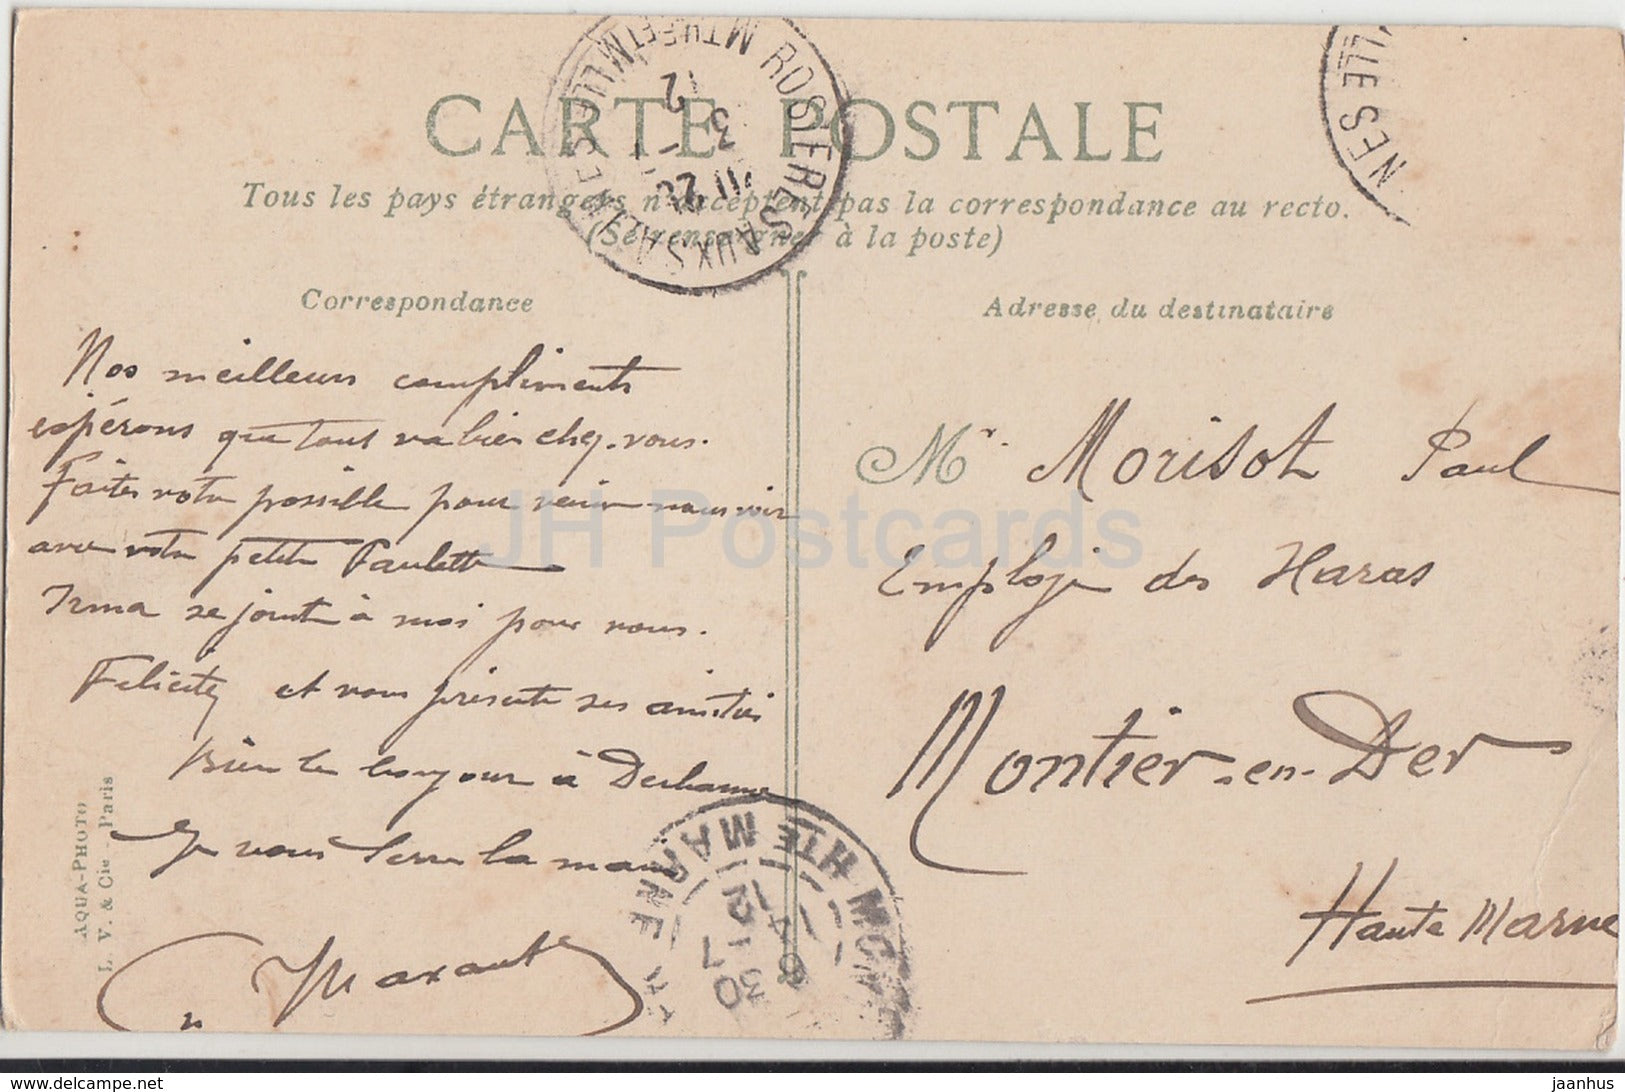 CARTE POSTALE
Tous les pays étrangers n'acceptent pas la correspondance au recto.
(Se renseigner à la poste)
ROSIERES AUX SALINES MTHE ET MLLE
Correspondance
Adresse du destinataire
Nos meilleurs compliments
espérons que tout va bien chez vous.
Faites votre possible pour venir nous voir
avec votre petite Paulette
Irma se joint à moi pour vous
Féliciter et vous présente ses amitiés
Bien le bonjour à
Je vous serre la main
Maraut
Mr. Morisot Paul
Employé des Haras
Montier-en-Der
Haute Marne
HTE MARNE
30 7
AQUA-PHOTO
L. V. & Cie - Paris
JH Postcards
delcampe.net
jaanhus